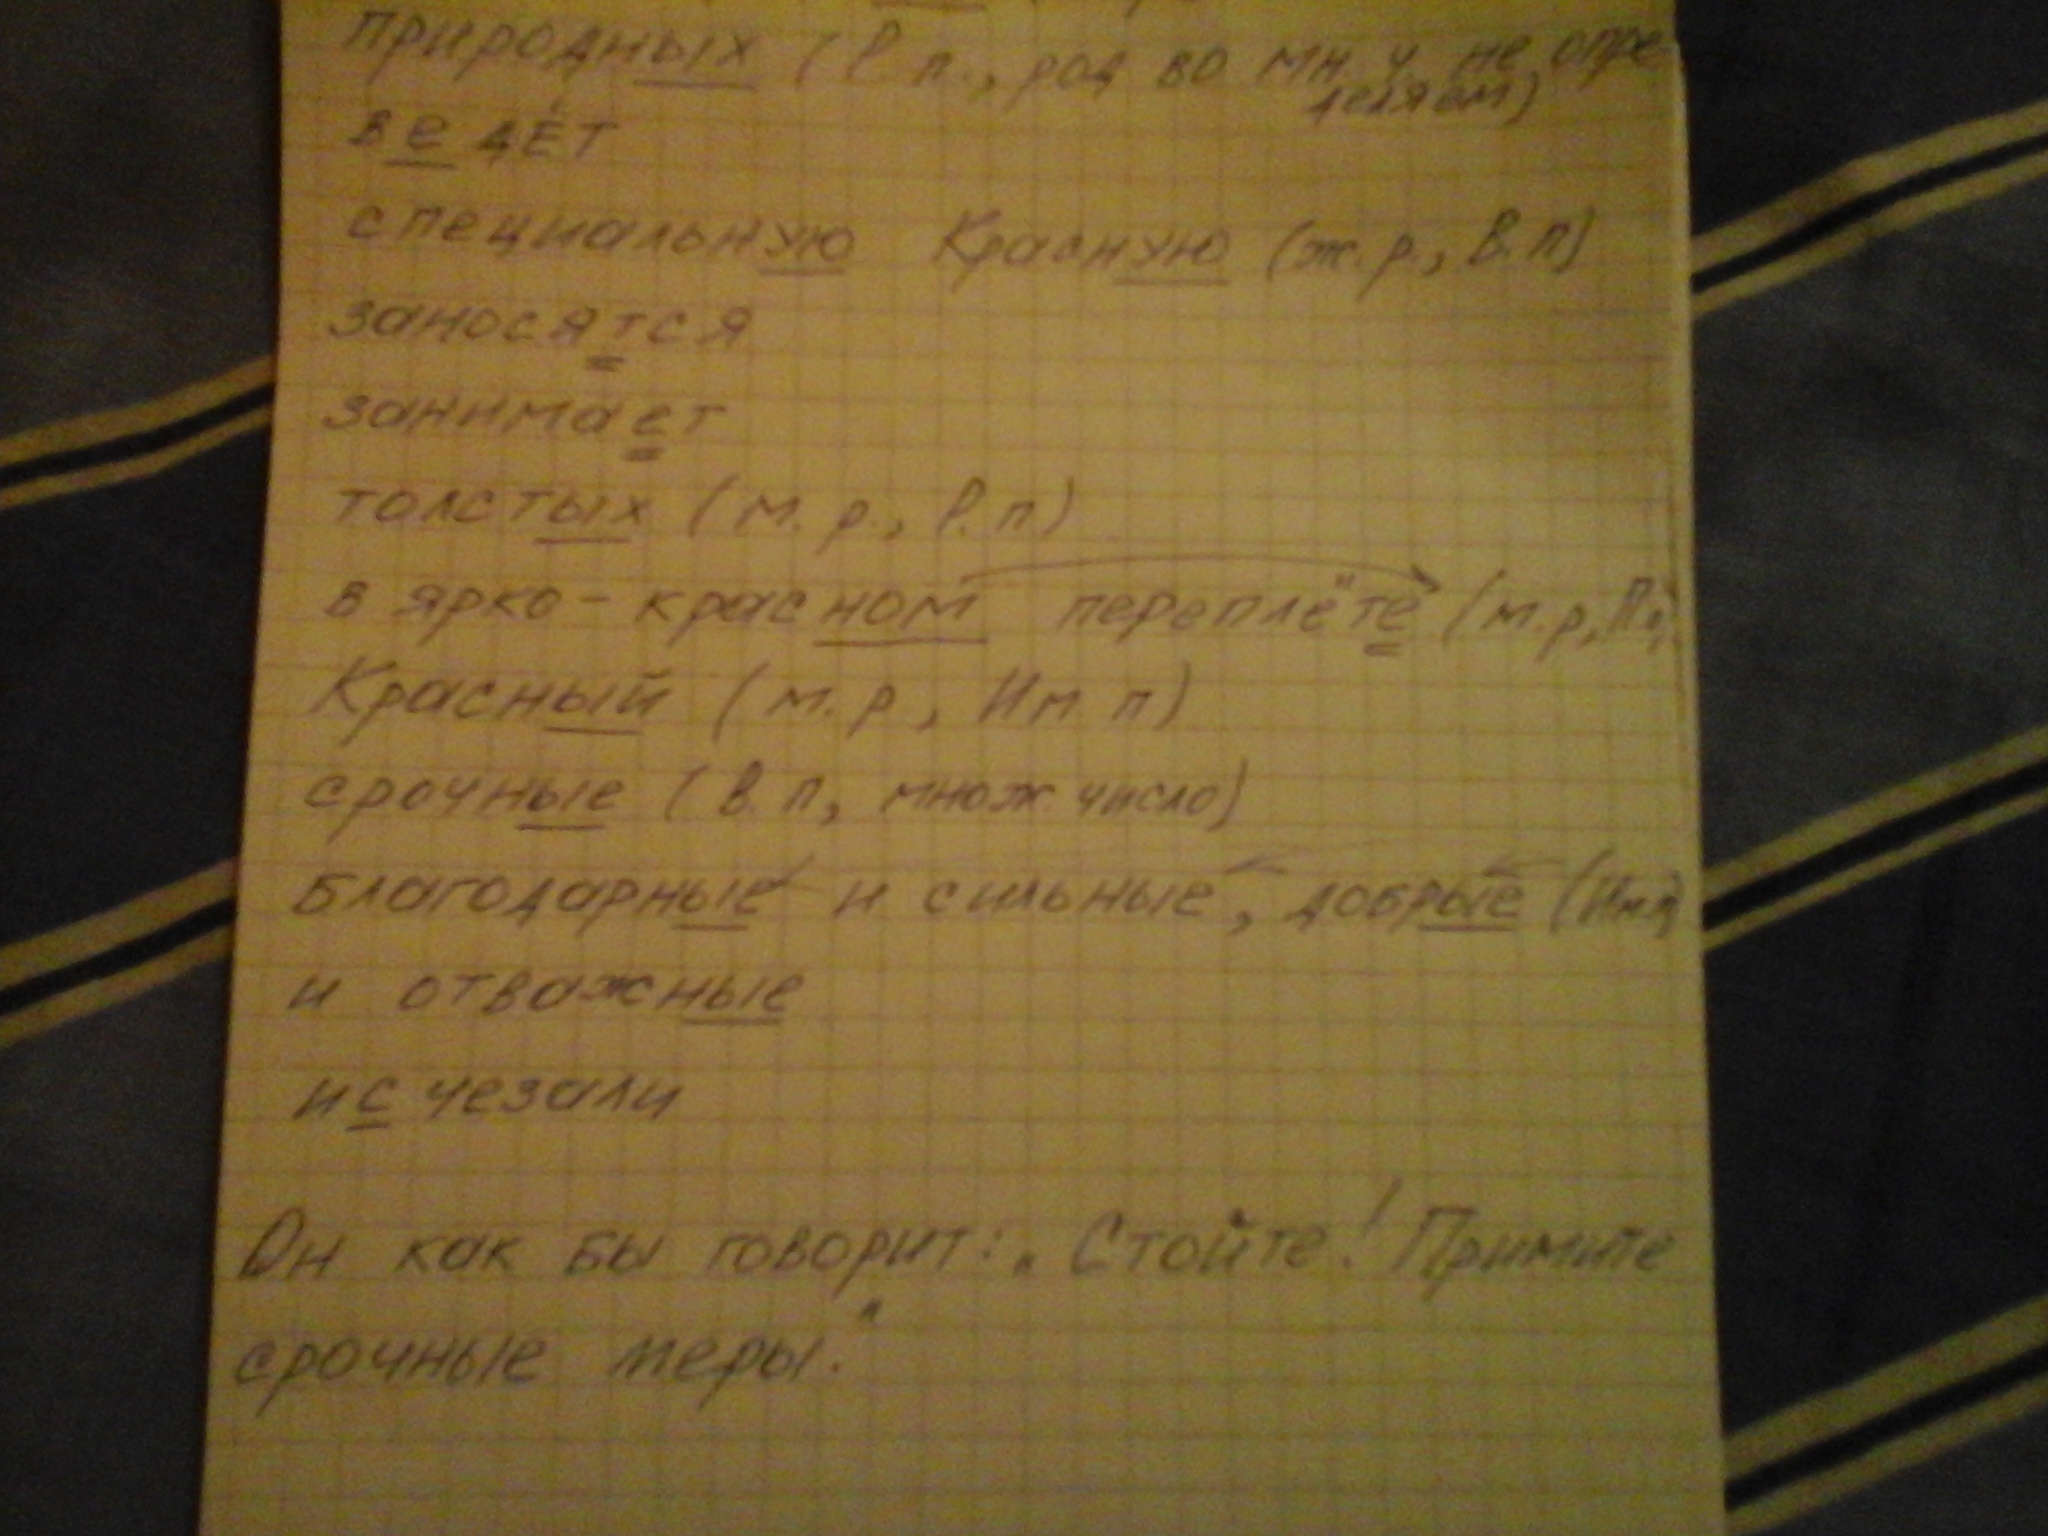 природных (Р. п., род во мн. ч. не опре-
деляем)
ведёт
специальную Красную (ж. р., В. п)
заносятся
занимает
толстых (м. р., Р. п)
в ярко-красном переплёте (м. р, П.п.)
Красный (м. р, Им п)
срочные (В. п, множ число)
Благодарные и сильные, добрые (Им.п)
и отважные
исчезали
Он как бы говорит: „Стойте! Примите
срочные меры."